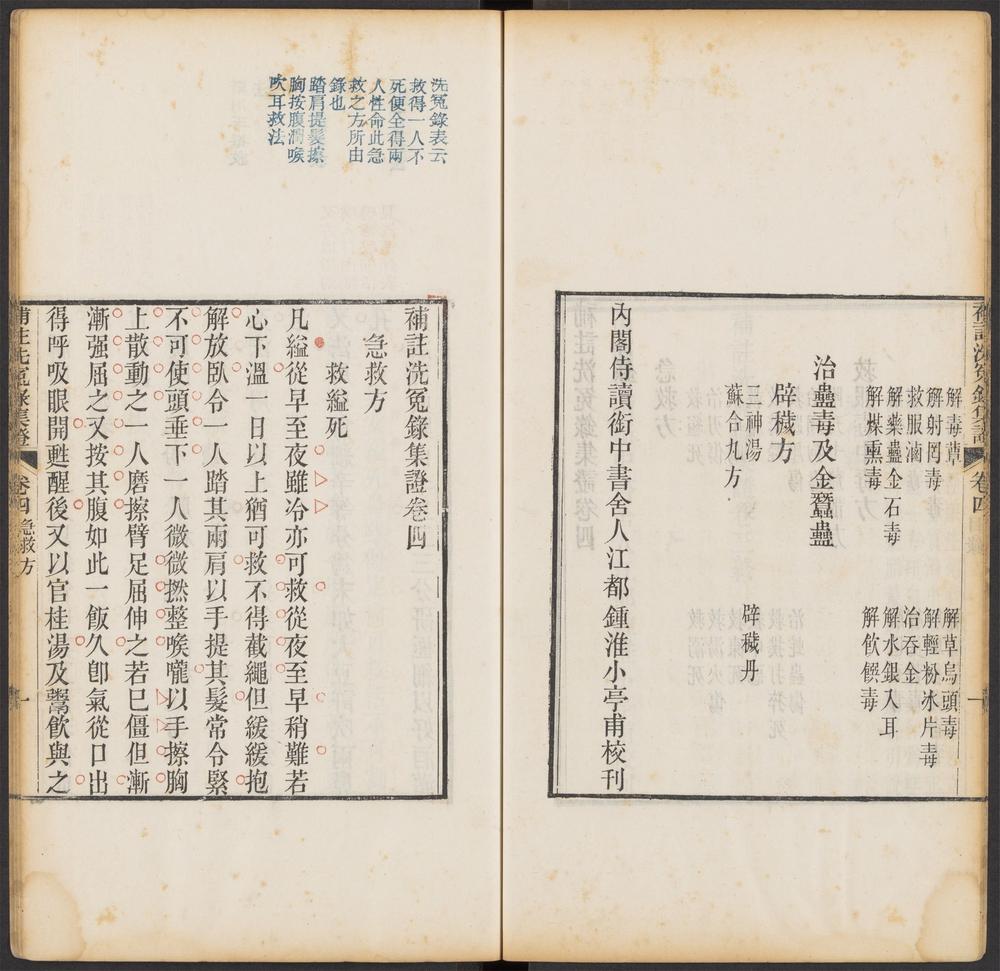 補註洗冤錄集證
卷四
目錄
一
解毒蕈
解草烏頭毒
解射罔毒
解輕粉冰片毒
救服滷
治吞金
解藥蠱金石毒
解水銀入耳
解煤熏毒
解飲饌毒
治蠱毒及金蠶蠱
辟穢方
三神湯
辟穢丹
蘇合丸方
內閣侍讀銜中書舍人江都鍾淮小亭甫校刊
洗冤錄表云
救得一人不
死便全得兩
人性命此急
救之方所由
錄也
踏肩提髮擦
胸按腹潤喉
吹耳救法
補註洗冤錄集證卷四
急救方
救縊死
凡縊從早至夜雖冷亦可救從夜至早稍難若
心下溫一日以上猶可救不得截繩但緩緩抱
解放臥令一人踏其兩肩以手提其髮常令緊
不可使頭垂下一人微微撚整喉嚨以手擦胸
上散動之一人磨擦臂足屈伸之若已僵但漸
漸强屈之又按其腹如此一飯久卽氣從口出
得呼吸眼開甦醒後又以官桂湯及粥飲與之
補註洗冤錄集證
卷四
急救方
一